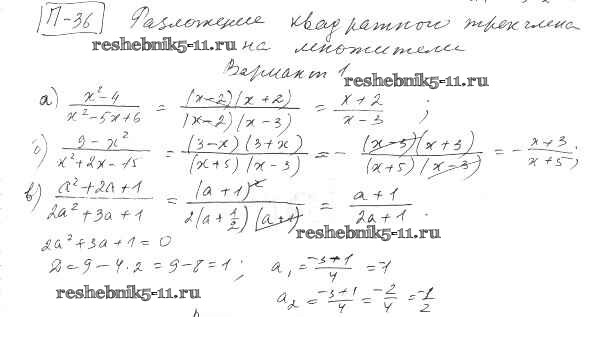 П-36 Разложение квадратного трехчлена
reshebnik5-11.ru на множители
Вариант 1
reshebnik5-11.ru
а) (x²-4)/(x²-5x+6) = ((x-2)(x+2))/((x-2)(x-3)) = (x+2)/(x-3) ;
б) (9-x²)/(x²+2x-15) = ((3-x)(3+x))/((x+5)(x-3)) = - ((x-3)(x+3))/((x+5)(x-3)) = - (x+3)/(x+5) ;
в) (a²+2a+1)/(2a²+3a+1) = (a+1)²/(2(a+1/2)(a+1)) = (a+1)/(2a+1) .
reshebnik5-11.ru
2a²+3a+1=0
D=9-4·2=9-8=1; a₁=(-3+1)/4=-1
reshebnik5-11.ru
a₂=(-3+1)/4=(-2)/4=(-1)/2